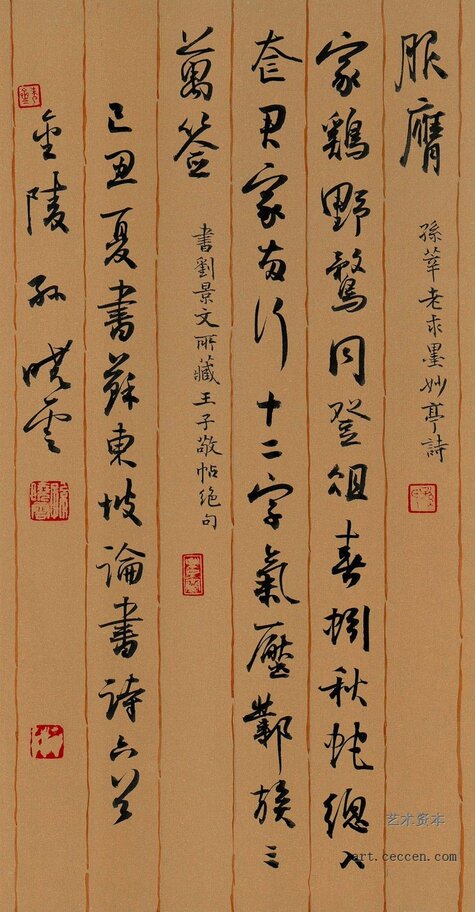 服膺
孫莘老求墨妙亭詩
家鷄野鶩同登俎春蚓秋蛇總入
奩君家兩行十二字氣壓鄴侯三
萬簽
書劉景文所藏王子敬帖絕句
己丑夏書蘇東坡論書詩六首
金陵孫曉雲
艺术资本
art.ceccen.com